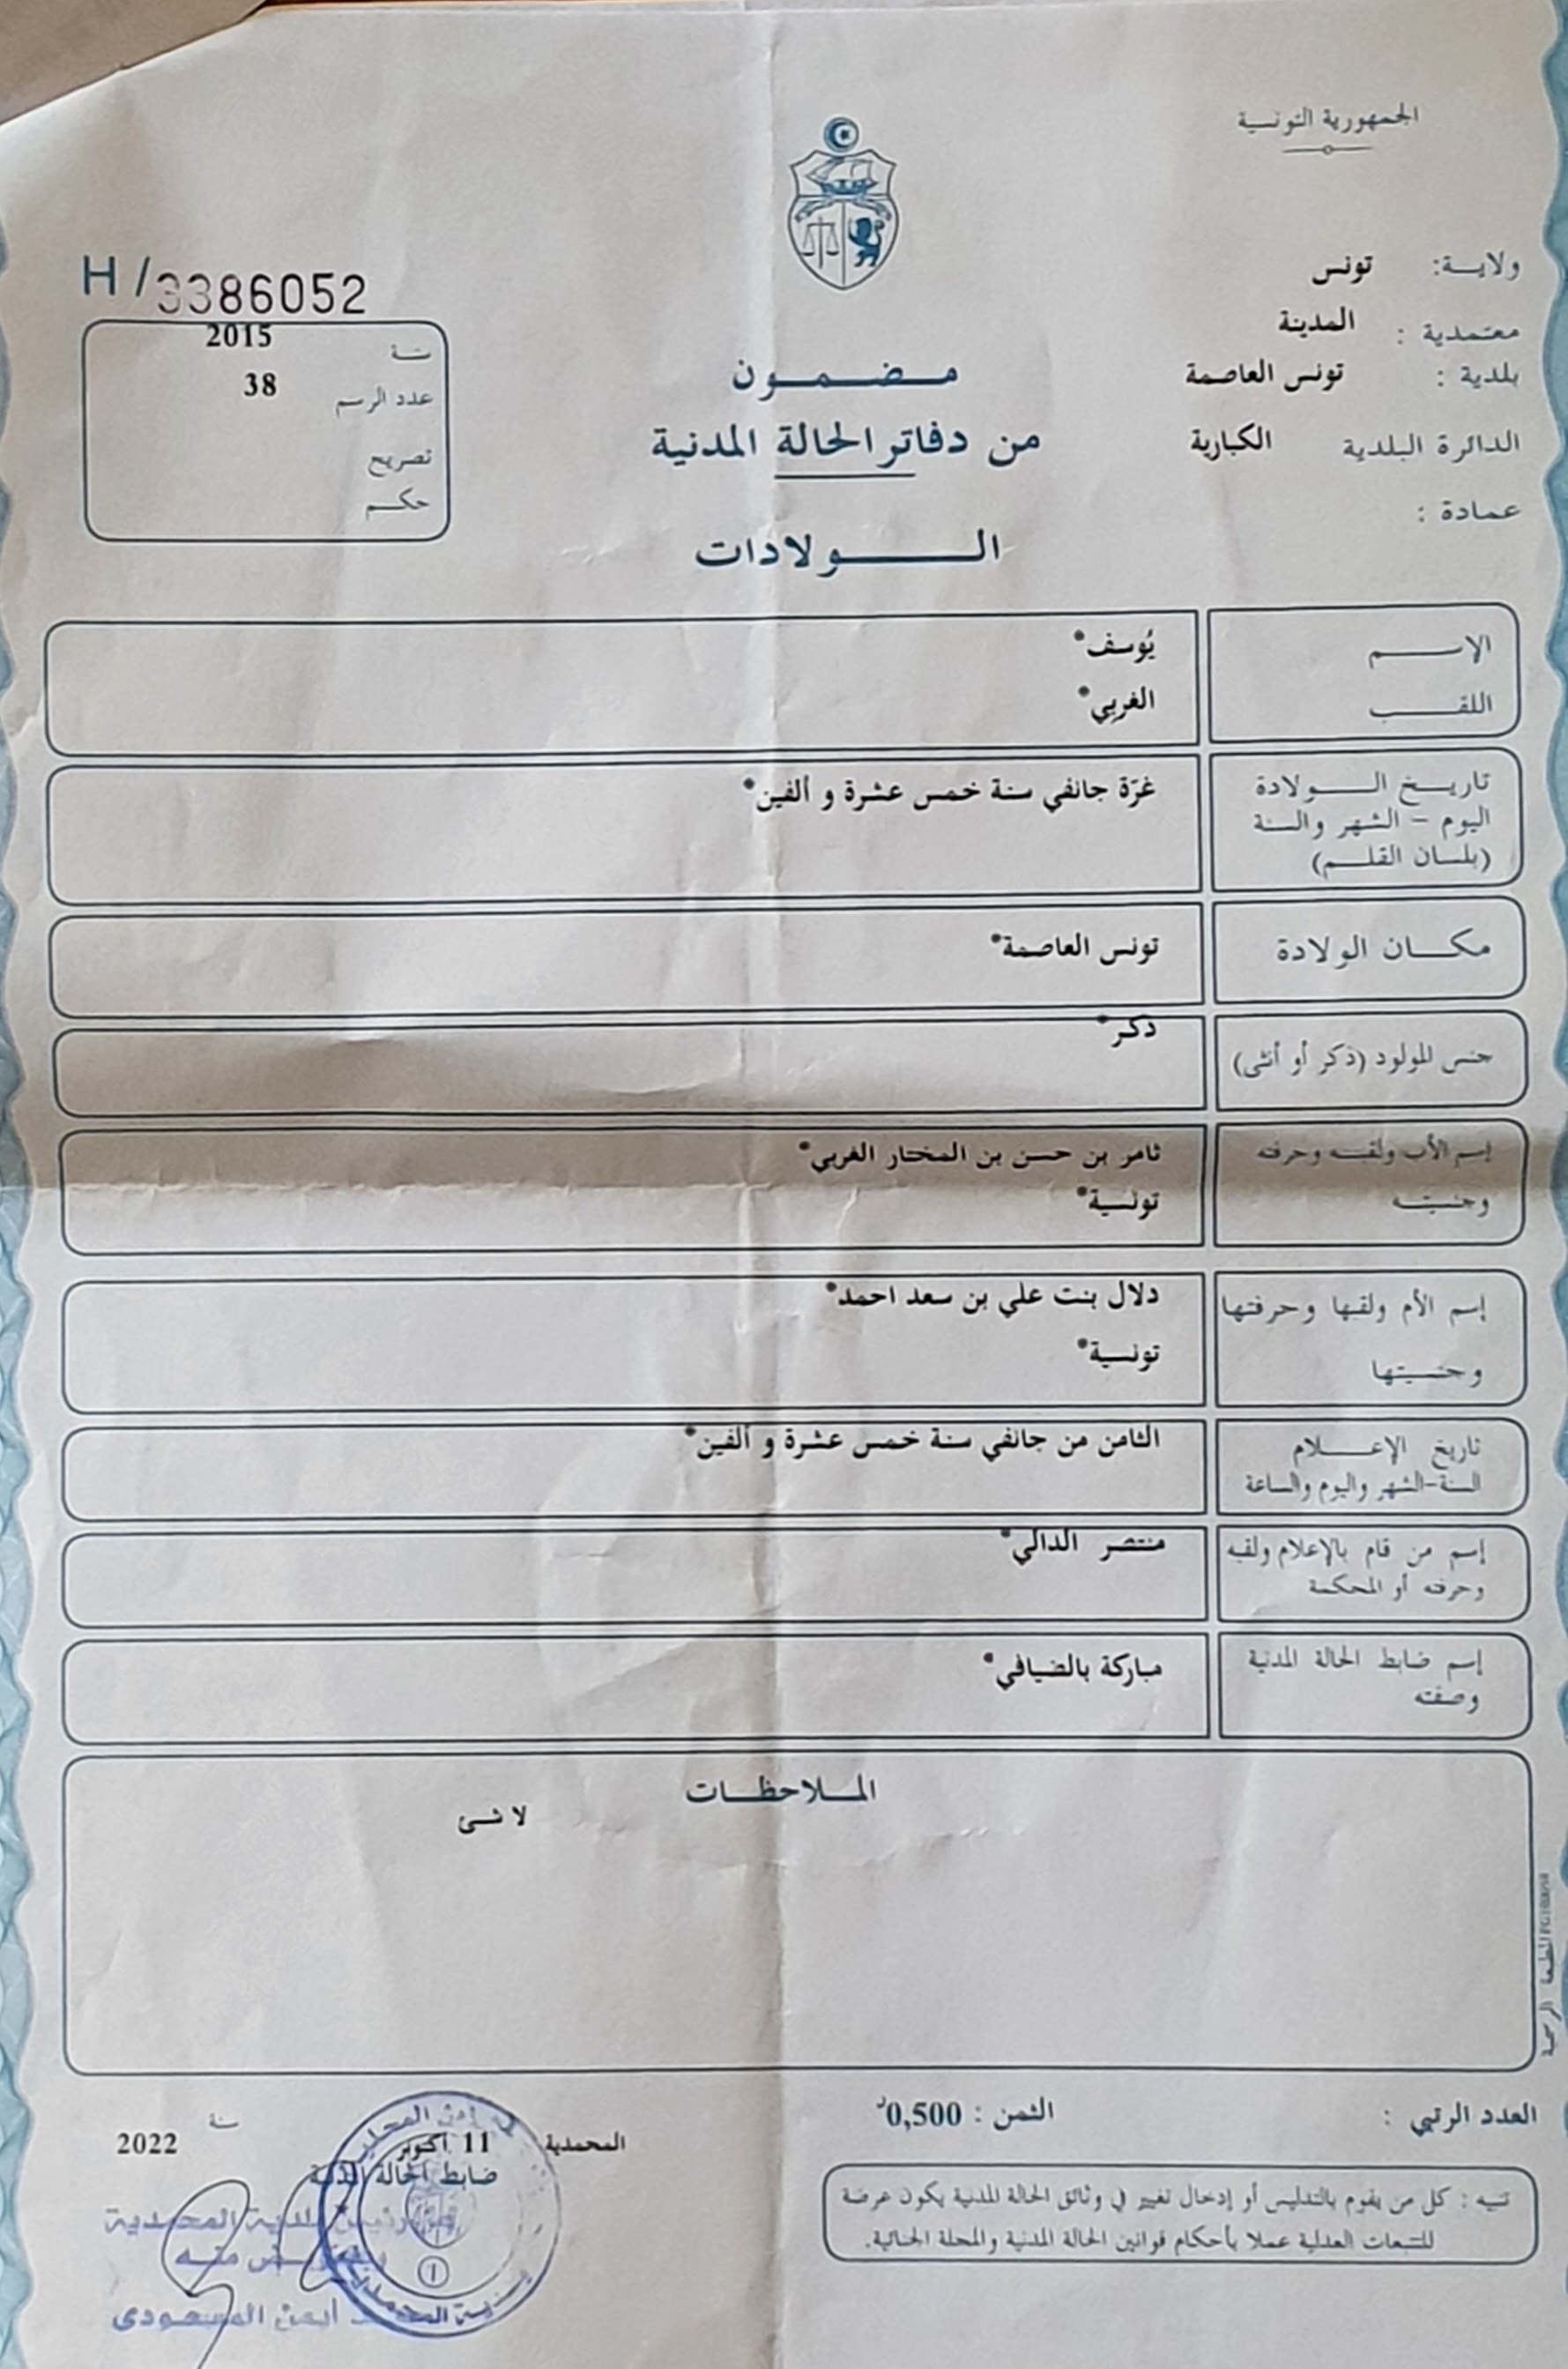 الجمهورية التونسية
ولايـة: تونس
معتمدية : المدينة
بلدية : تونس العاصمة
الدائرة البلدية الكبارية
عمادة :
H/3386052
سنة 2015
عدد الرسم 38
تصريح
حكم
مضمون
من دفاتر الحالة المدنية
الولادات
الاسم يُوسف*
اللقب الغربي*
تاريخ الولادة غرّة جانفي سنة خمس عشرة و ألفين*
اليوم - الشهر والسنة
(بلسان القلم)
مكان الولادة تونس العاصمة*
جنس المولود (ذكر أو أنثى) ذكر*
إسم الأب ولقبه وحرفته ثامر بن حسن بن المختار الغربي*
وجنسيته تونسية*
إسم الأم ولقبها وحرفتها دلال بنت علي بن سعد احمد*
وجنسيتها تونسية*
تاريخ الإعلام الثامن من جانفي سنة خمس عشرة و ألفين*
السنة-الشهر واليوم والساعة
إسم من قام بالإعلام ولقبه منتصر الدالي*
وحرفته أو المحكمة
إسم ضابط الحالة المدنية مباركة بالضيافي*
وصفته
الملاحظات
لا شئ
المطبعة الرسمية
العدد الرتبي :
الثمن : 0,500د
المحمدية 11 أكتوبر سنة 2022
ضابط الحالة المدنية
رئيس بلدية المحمدية
أيمن المسعودي
تنبيه : كل من يقوم بالتدليس أو إدخال تغيير في وثائق الحالة المدنية يكون عرضة
للتتبعات العدلية عملا بأحكام قوانين الحالة المدنية والمجلة الجنائية.